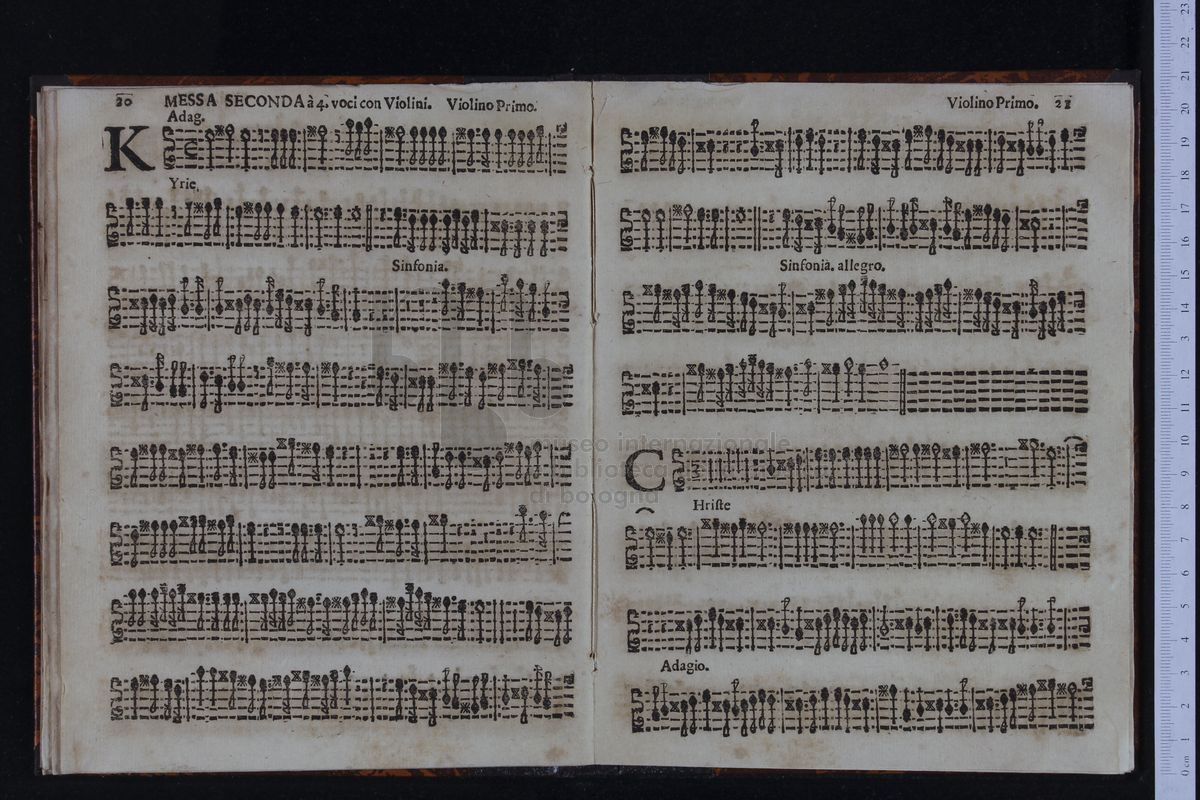 20 MESSA SECONDA à 4. voci con Violini. Violino Primo.
Adag.
K
Yrie.
Sinfonia.
Violino Primo. 21
Sinfonia. allegro.
C
Hriste
Adagio.
museo internazionale
biblioteca
di bologna
0 cm 1 2 3 4 5 6 7 8 9 10 11 12 13 14 15 16 17 18 19 20 21 22 23